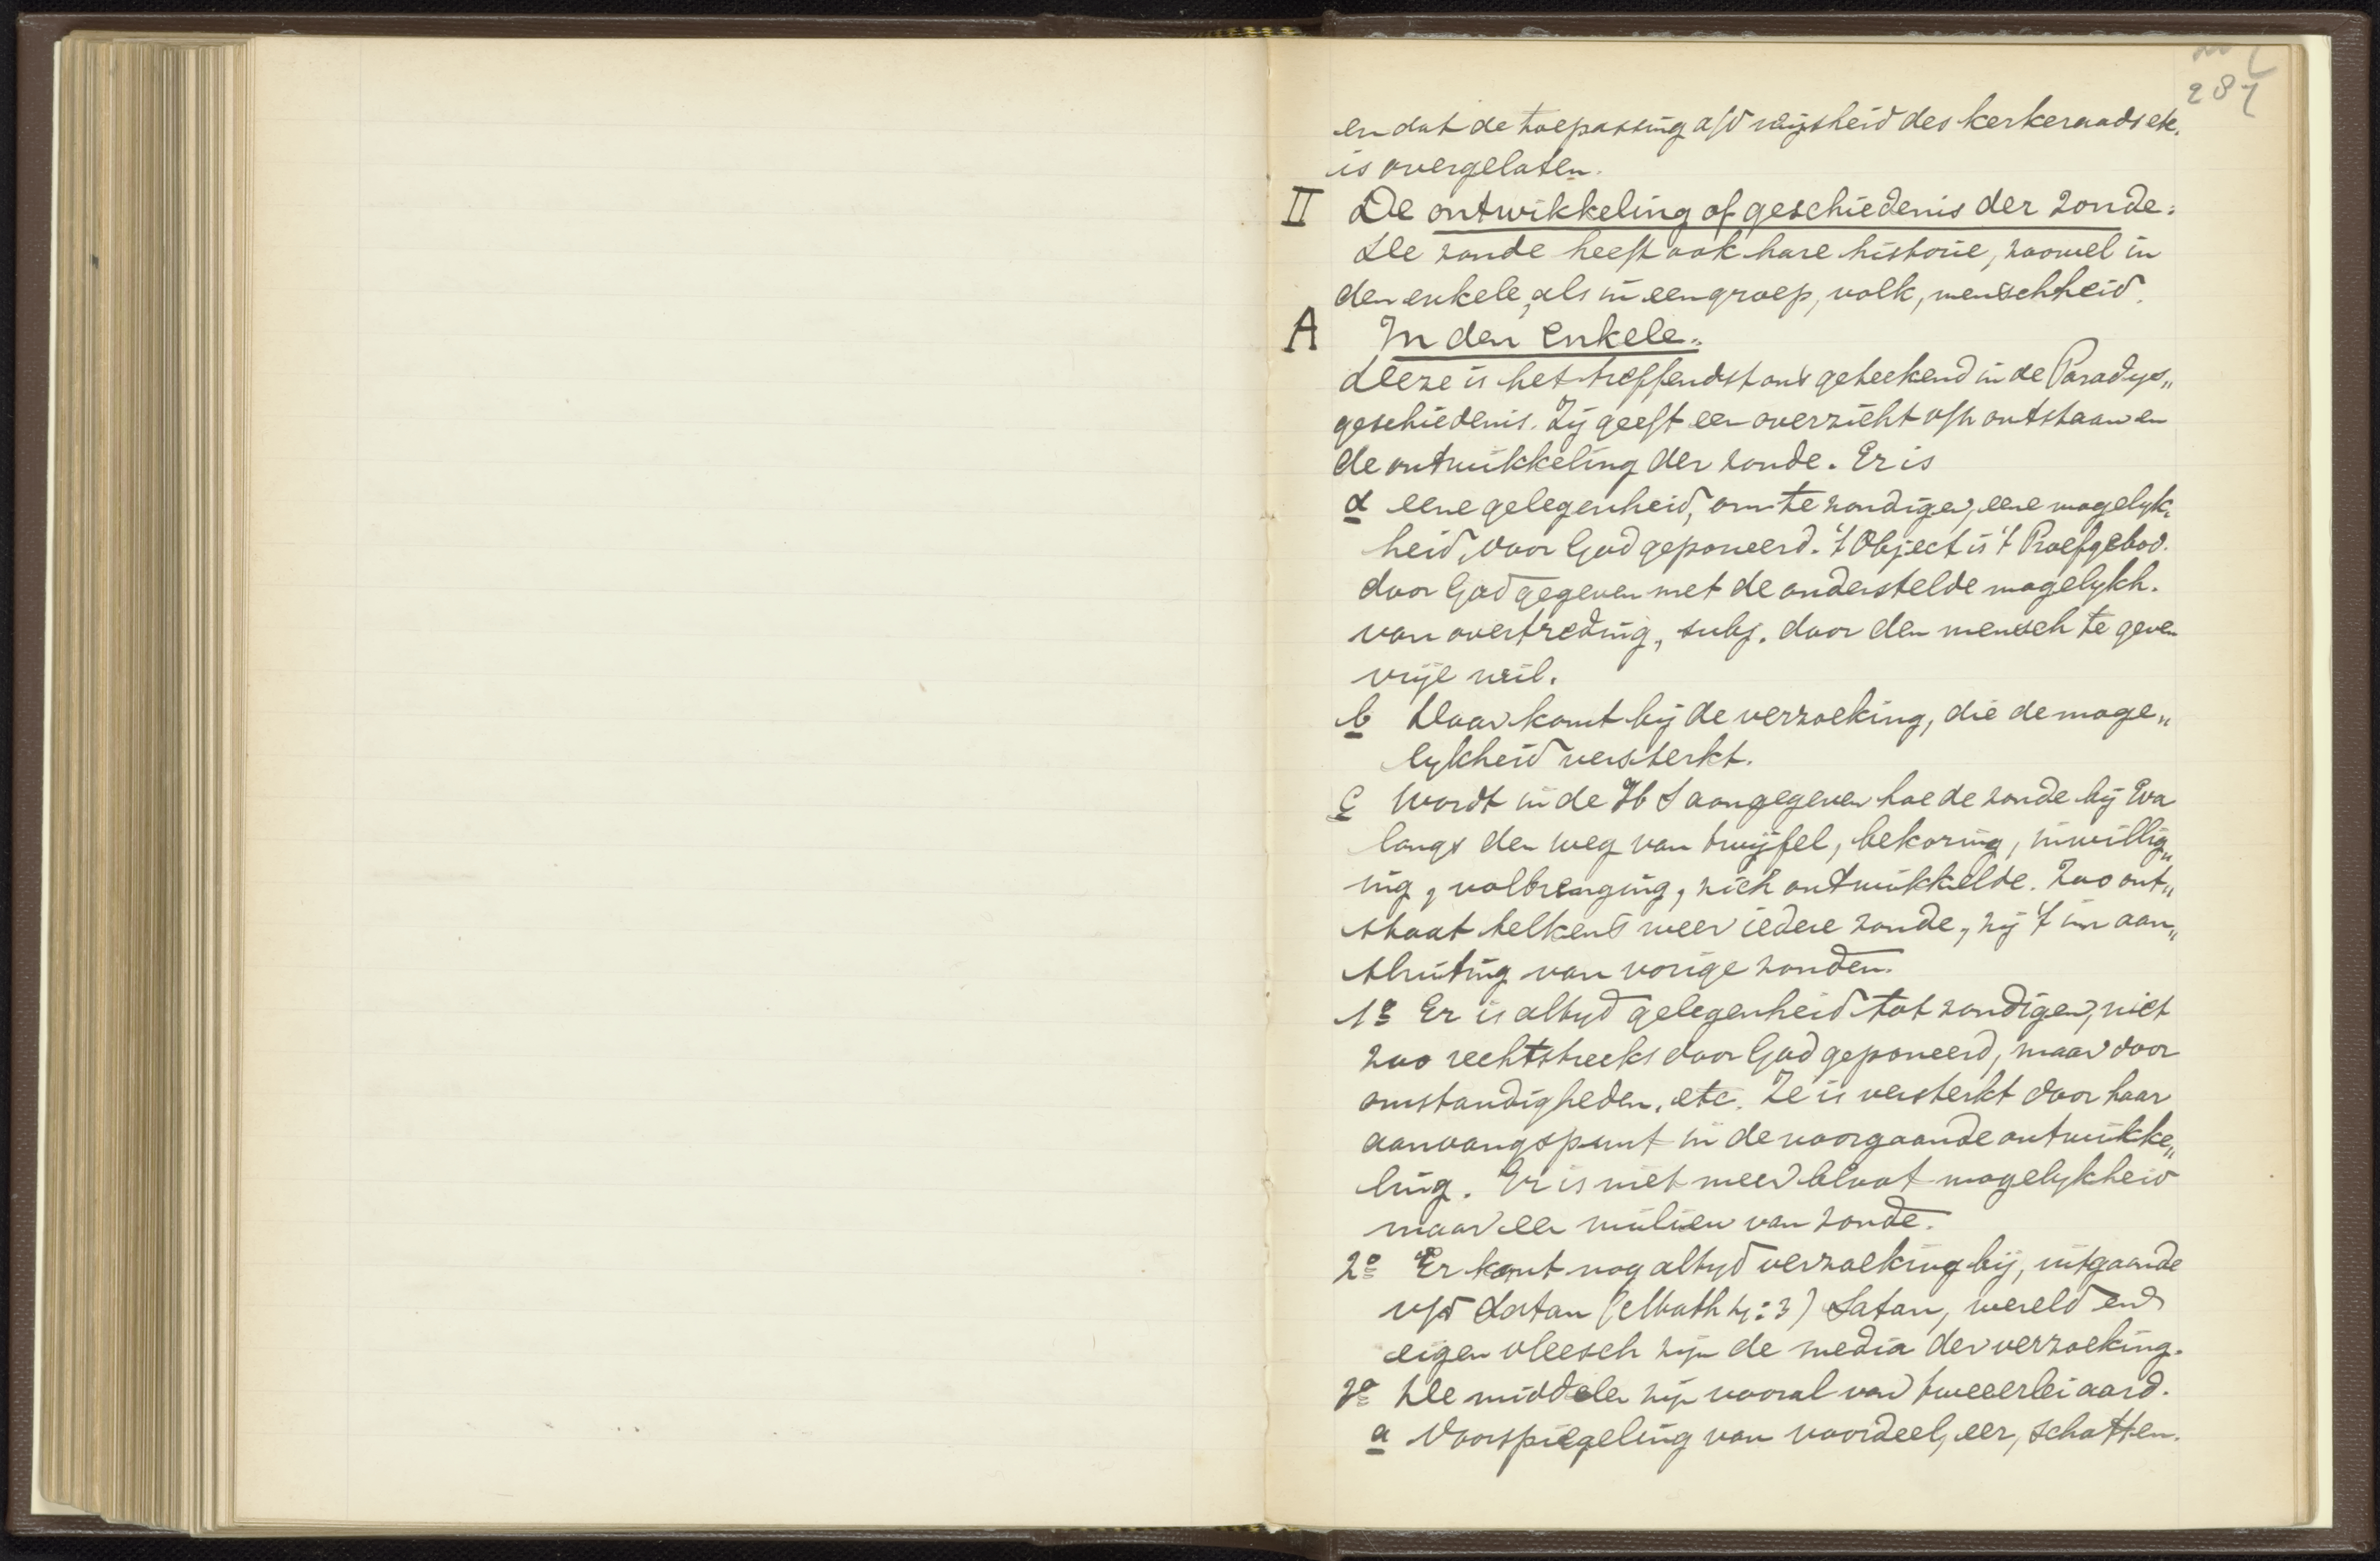 287
en dat de toepassing a/d wijsheid des kerkeraads etc.
is overgelaten.
II De ontwikkeling of geschiedenis der zonde.
De zonde heeft ook hare historie, zoowel in
den enkele, als in een groep, volk, menschheid.
A In den enkele.
Deeze is het treffendst ons geteekend in de Paradys„
geschiedenis. Zij geeft een overzicht v/h ontstaan en
de ontwikkeling der zonde. Er is
a eene gelegenheid, om te zondigen, eene mogelyk„
heid, door God geponeerd. 't Object is 't Proefgebod.
door God gegeven met de onderstelde mogelykh.
van overtreding, subj. door den mensch te geven
vrije wil.
b Daar komt bij de verzoeking, die de moge„
lykheid versterkt.
c Wordt in de H S aangegeven hoe de zonde bij Eva
langs den weg van twijfel, bekoring, inwillig„
ing, volbrenging, zich ontwikkelde. Zoo ont„
staat telkens weer iedere zonde, zij 't in aan„
sluiting van vorige zonden.
1e Er is altyd gelegenheid tot zondigen, niet
zoo rechtstreeks door God geponeerd, maar door
omstandigheden, etc. Ze is versterkt door haar
aanvangspunt in de voorgaande ontwikke„
ling. Er is niet meer bloot mogelykheid
maar een milieu van zonde.
2e Er komt nog altyd verzoeking bij, uitgaande
v/d Satan (Math 4:3) Satan, wereld en
eigen vleesch zijn de media der verzoeking.
3e De middelen zijn vooral van tweeërlei aard.
a Voorspiegeling van voordeel, eer, schatten.